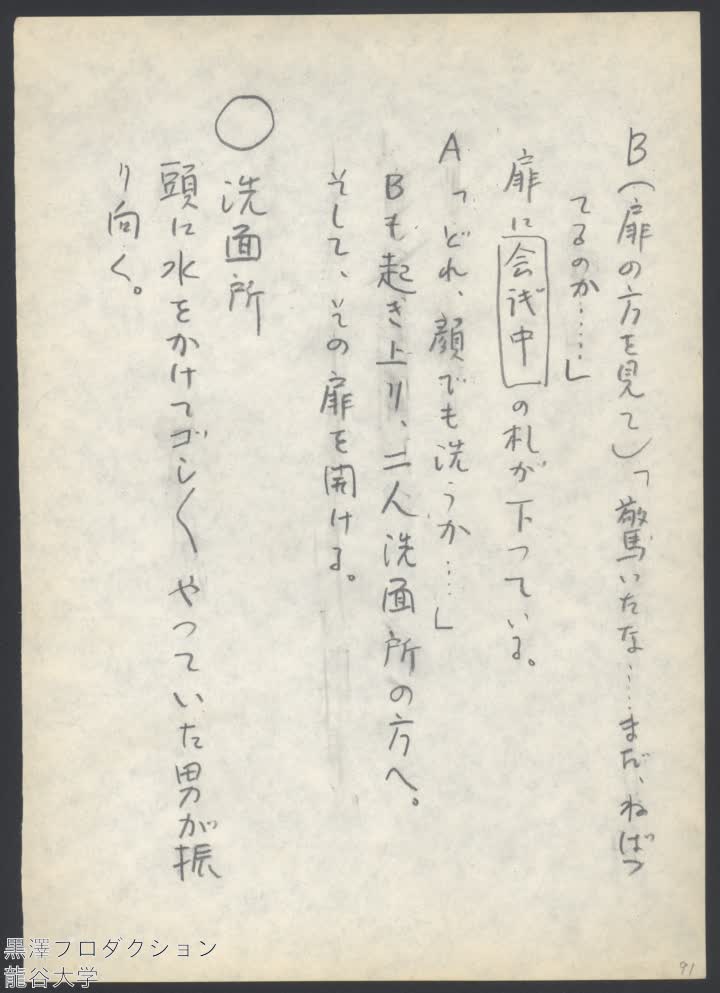 B（扉の方を見て）「驚いたな……まだ、ねばつ
てるのか……」
扉に会議中の札が下つている。
A「どれ、顔でも洗うか……」
Bも起き上り、二人洗面所の方へ。
そして、その扉を開ける。
○洗面所
頭に水をかけてゴシ〱やつていた男が振
り向く。
91
黒澤プロダクション
龍谷大学